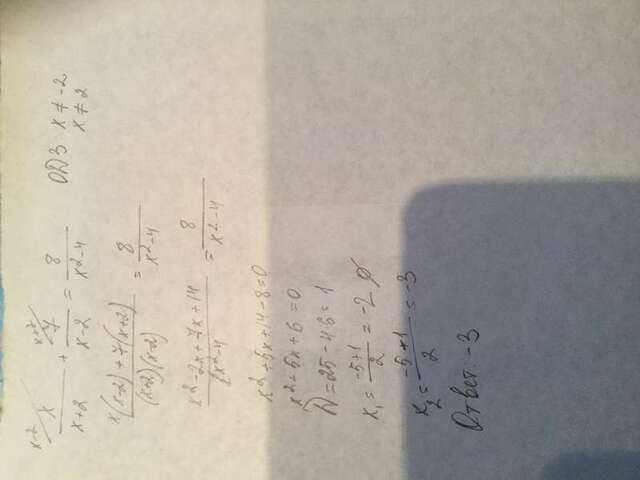 x/(x+2) + 7/(x-2) = 8/(x²-4) ОДЗ x ≠ -2
x ≠ 2
(x(x-2)+7(x+2))/((x+2)(x-2)) = 8/(x²-4)
(x²-2x+7x+14)/(x²-4) = 8/(x²-4)
x²+5x+14-8=0
x²+5x+6=0
x₁ = (-5+1)/2 = -2 ∅
Ответ: -3